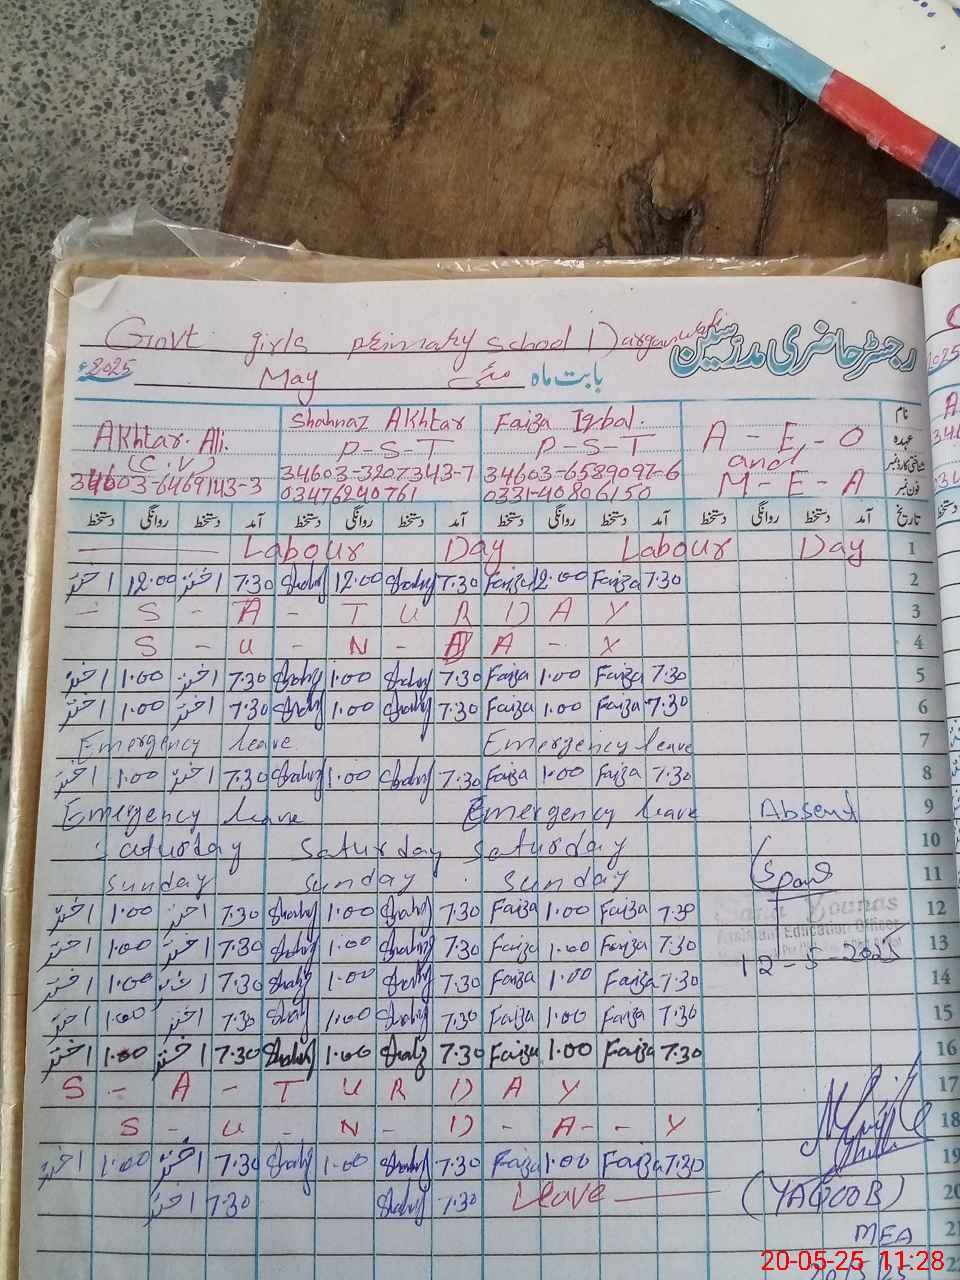 Govt girls primary school Dargawali
رجسٹر حاضری مدرسین
2025ء May مئی بابت ماہ
Akhtar Ali. Shahnaz Akhtar Faiza Iqbal. A-E-O نام
(C.V) P-S-T P-S-T and عہدہ
34603-6469143-3 34603-3207343-7 34603-6589097-6 M-E-A شناختی کارڈ نمبر
03476240761 0331-40806150 فون نمبر
دستخط روانگی دستخط آمد دستخط روانگی دستخط آمد دستخط روانگی دستخط آمد دستخط روانگی دستخط آمد تاریخ
Labour Day Labour Day 1
اختر 12.00 اختر 7.30 Shahnz 12.00 Shahnz 7.30 Faiza 12.00 Faiza 7.30 2
- S - A - T U R D A Y 3
S - U - N - D A - Y 4
اختر 1.00 اختر 7.30 Shahnz 1.00 Shahnz 7.30 Faiza 1.00 Faiza 7.30 5
اختر 1.00 اختر 7.30 Shahnz 1.00 Shahnz 7.30 Faiza 1.00 Faiza 7.30 6
Emergency leave Emergency leave 7
اختر 1.00 اختر 7.30 Shahnz 1.00 Shahnz 7.30 Faiza 1.00 Faiza 7.30 8
Emergency leave Emergency leave Absent 9
Saturday Saturday Saturday 10
Sunday Sunday Sunday 11
اختر 1.00 اختر 7.30 Shahnz 1.00 Shahnz 7.30 Faiza 1.00 Faiza 7.30 Sana Younas 12
Assistant Education Officer
اختر 1.00 اختر 7.30 Shahnz 1.00 Shahnz 7.30 Faiza 1.00 Faiza 7.30 12-5-2025 13
اختر 1.00 اختر 7.30 Shahnz 1.00 Shahnz 7.30 Faiza 1.00 Faiza 7.30 14
اختر 1.00 اختر 7.30 Shahnz 1.00 Shahnz 7.30 Faiza 1.00 Faiza 7.30 15
اختر 1.00 اختر 7.30 Shahnz 1.00 Shahnz 7.30 Faiza 1.00 Faiza 7.30 16
S - A - T U R D A Y 17
S - U - N - D - A - - Y 18
اختر 1.00 اختر 7.30 Shahnz 1.00 Shahnz 7.30 Faiza 1.00 Faiza 7.30 19
اختر 7.30 Shahnz 7.30 Leave (YAQOOB) 20
MEA 21
20-05-25 11:28
22